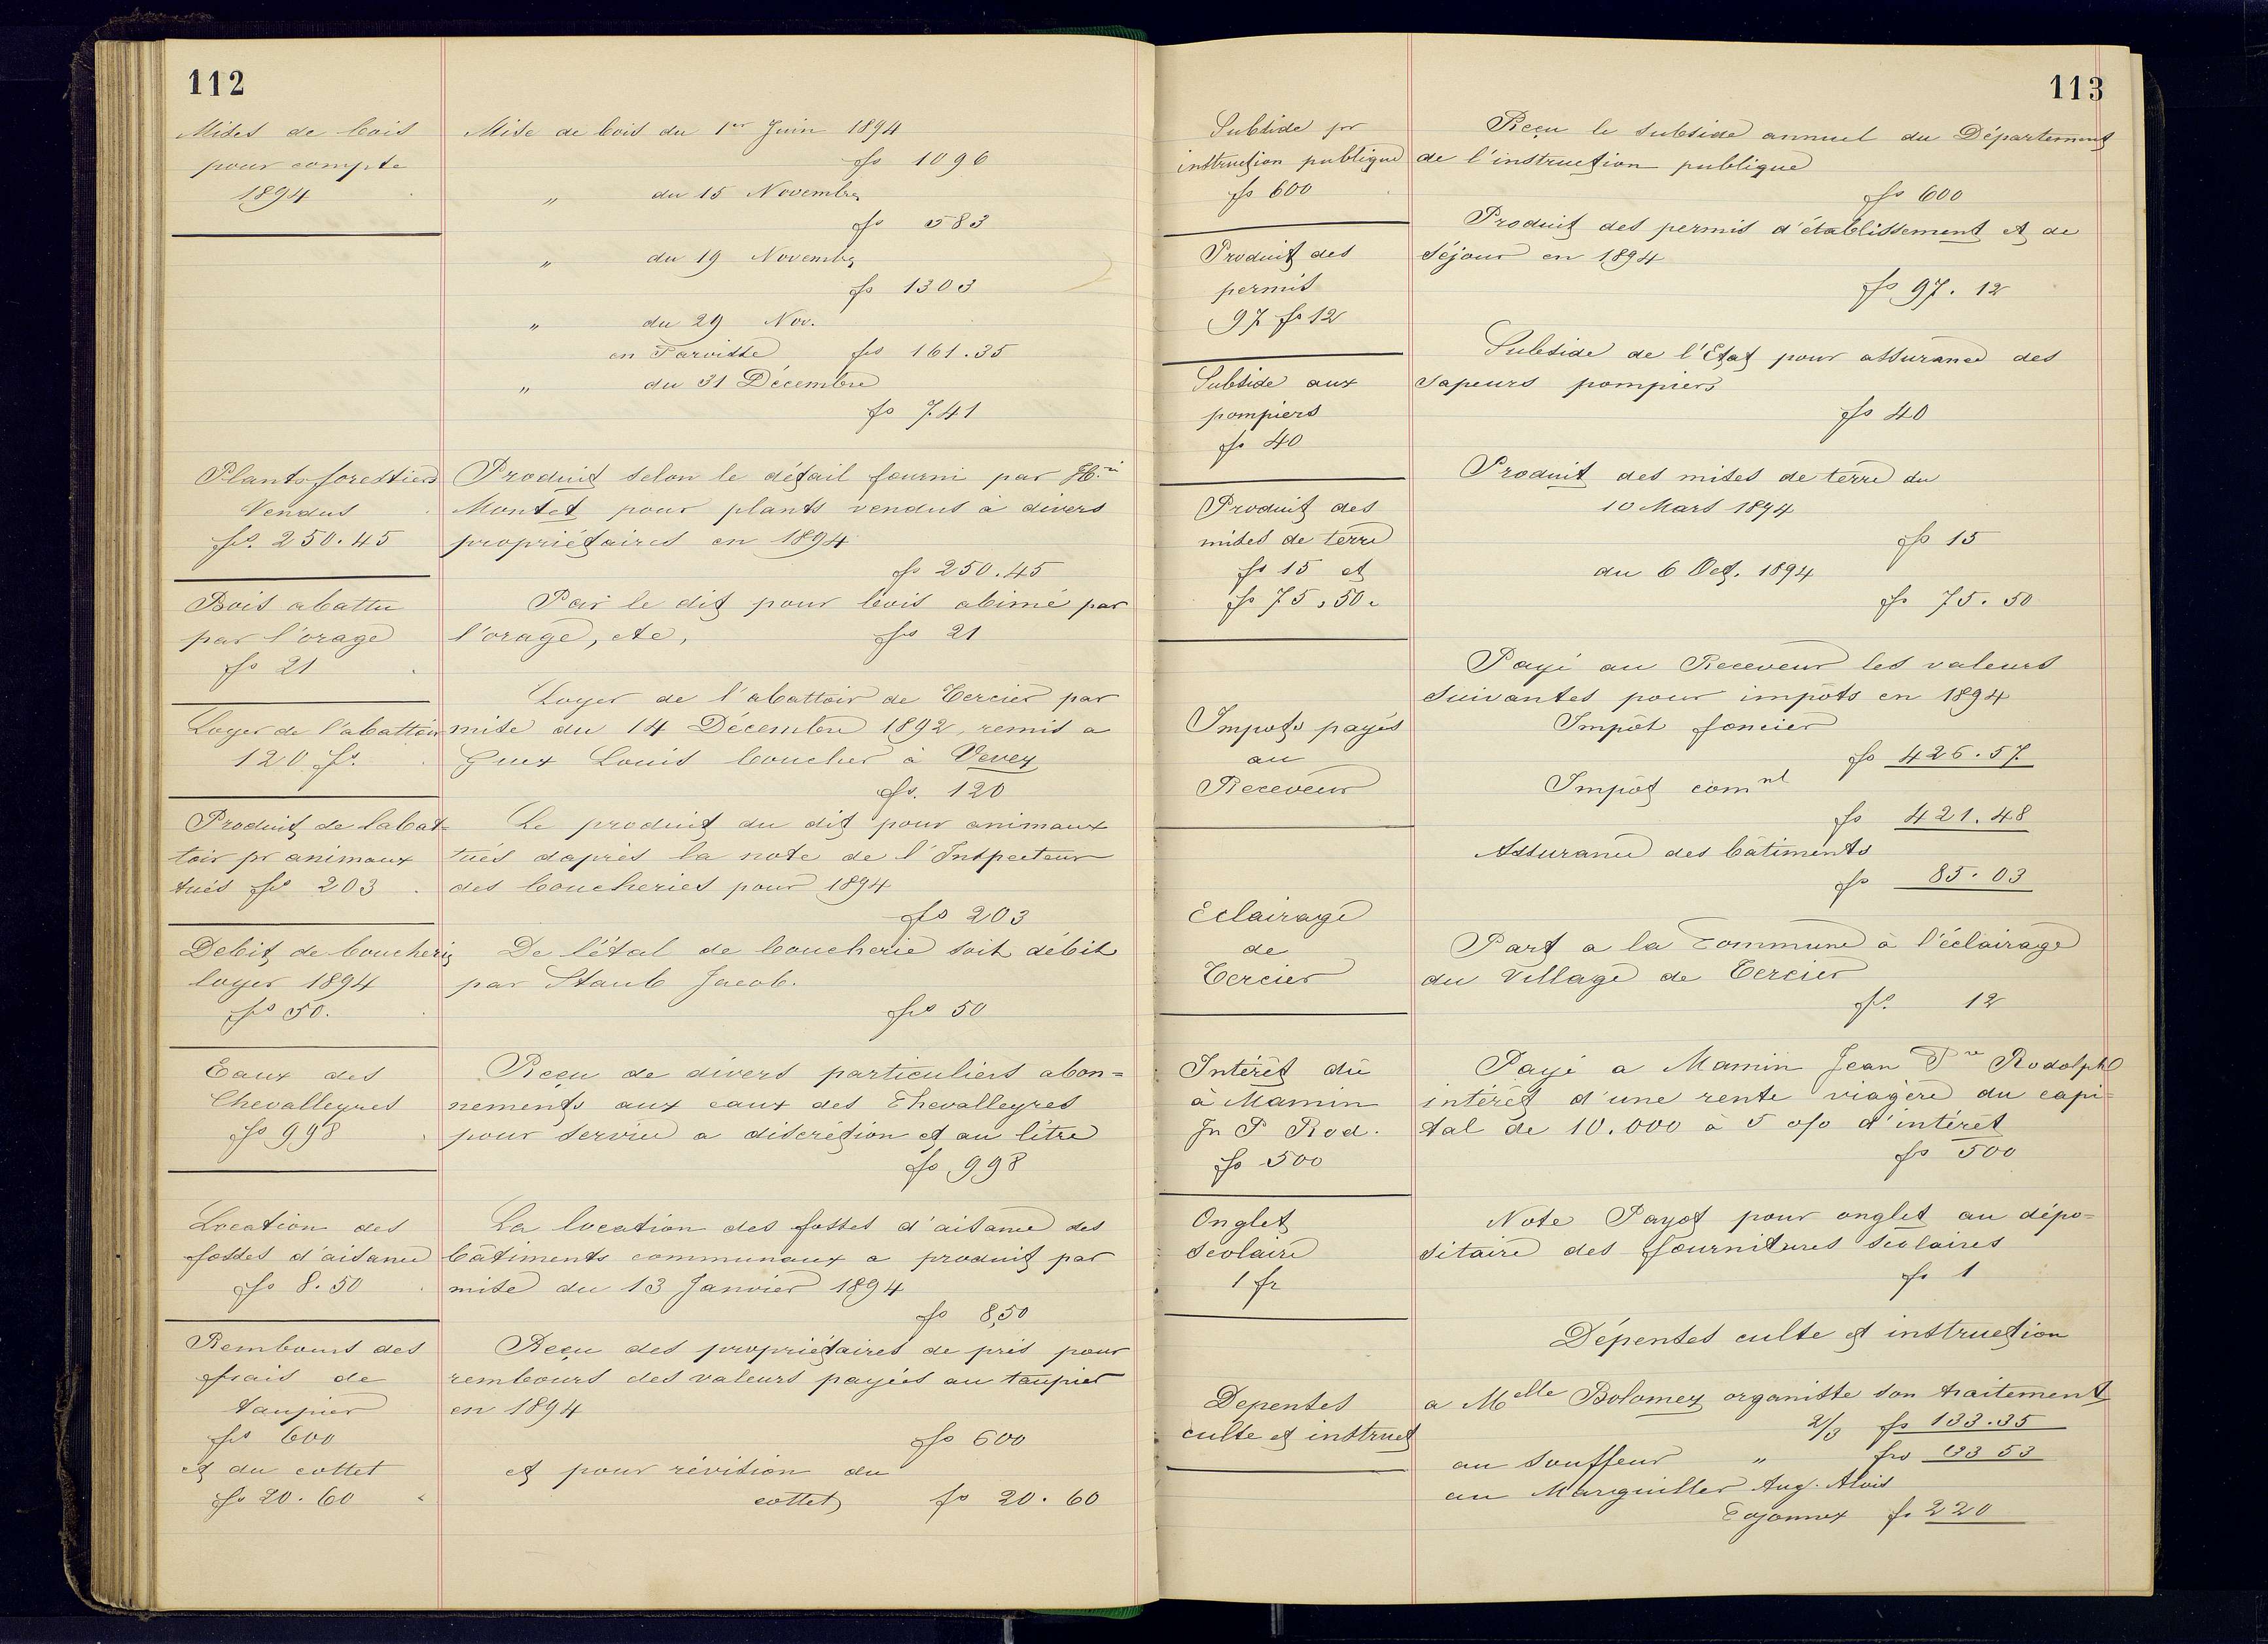 112
Mises de bois
pour compte
1894
Mise de bois du 1er Juin 1894
fs 1096
" du 15 Novembre
fs 583
" du 19 Novembre
fs 1303
" du 29 Nov.
en Parvisse frs 161.35
" du 31 Décembre
fs 741
Plants forestiers
Vendus
frs. 250.45
Produit selon le détail fourni par Hri
Montet pour plants vendus à divers
propriétaires en 1894
fs 250.45
Bois abattu
par l'orage
fs 21
Par le dit pour bois abimé par
l'orage, etc, frs 21
Loyer de l'abattoir
120 fs.
Loyer de l'abattoir de Tercier par
mise du 14 Décembre 1892, remis a
Guex Louis boucher à Vevey
fs. 120
Produit de labat-
toir pr animaux
tués frs 203
Le produit du dit pour animaux
tués daprès la note de l'Inspecteur
des boucheries pour 1894
frs 203
Debit de boucherie
loyer 1894
frs 50.
De l'étal de boucherie soit débit
par Staub Jacob.
frs 50
Eaux des
Chevalleyres
fs 998
Reçu de divers particuliers abon=
nements aux eaux des Chevalleyres
pour service a discrétion et au litre
fs 998
Location des
fosses d'aisance
fs 8.50
La location des fosses d'aisance des
bâtiments communaux a produit par
mise du 13 Janvier 1894
fs 8,50
Rembours des
frais de
taupier
frs 600
et du cottet
fs 20.60
Reçu des propriétaires de prés pour
rembours des valeurs payées au taupier
en 1894
fs 600
et pour révision du
cottet fs 20.60
113
Subside pr
instruction publique
fs 600
Reçu le subside annuel du Département
de l'instruction publique
fs 600
Produit des
permis
97 fs 12
Produit des permis d'établissement et de
séjour en 1894
fs 97.12
Subside aux
pompiers
fs 40
Subside de l'Etat pour assurance des
sapeurs pompiers
fs 40
Produit des
mises de terre
fs 15 et
fs 75,50.
Produit des mises de terre du
10 Mars 1894
fs 15
du 6 Oct. 1894
fs 75.50
Impots payés
au
Receveur
Payé au Receveur les valeurs
suivantes pour impôts en 1894
Impôt foncier
fs 426.57.
Impôt comnl
fs 421.48
Assurance des bâtiments
fs 85.03
Eclairage
de
Tercier
Part a la Commune à l'éclairage
du Village de Tercier
fs. 12
Intérêt dû
à Mamin
Jn P Rod.
fs 500
Payé a Mamin Jean Pre Rodolphe
intérêt d'une rente viagère du capi=
tal de 10.000 à 5 o/o d'intérêt
fs 500
Onglet
scolaire
1 fr
Note Payot pour onglet au dépo=
sitaire des fournitures scolaires
fs 1
Dépenses culte et instruction
Depenses
culte et instruct
a Melle Bolomey organiste son traitement
2/3 fs 133.35
au souffleur " frs 33 53
au Marguiller Aug. Alois
Cojonnex fs 220